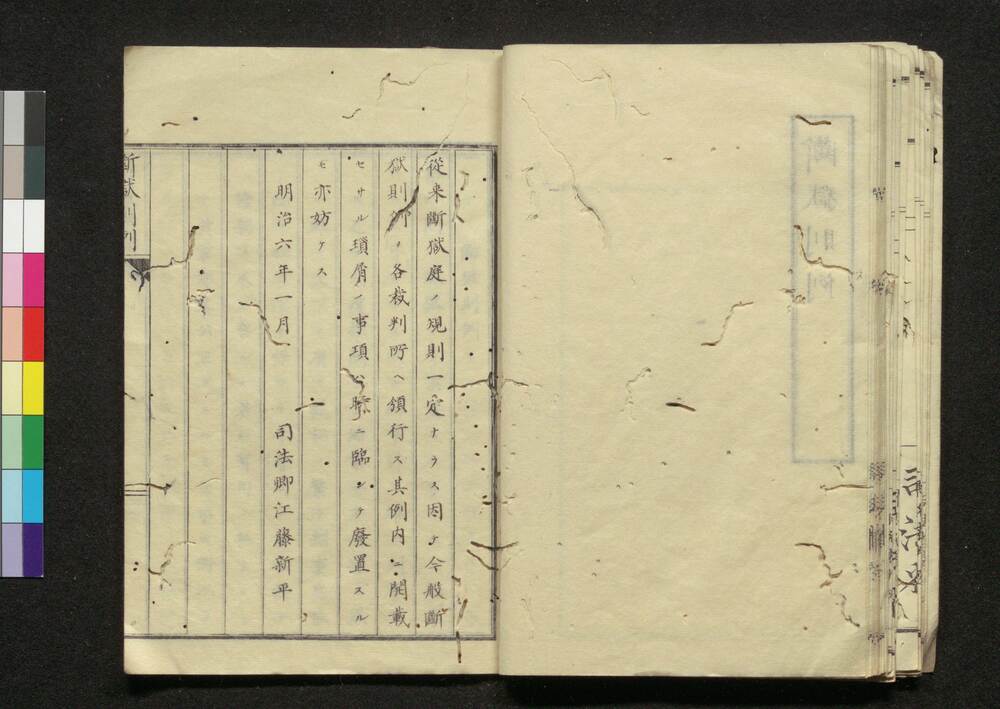 從来断獄庭ノ規則一定ナラス因テ今般断
獄則例ノ各裁判所ヘ頒行ス其例内ニ開載
セサル瑣屑ノ事項ハ時ニ臨ンテ廢置スル
モ亦妨ケス
明治六年一月　司法卿江藤新平
断獄則例
断獄則例
司法